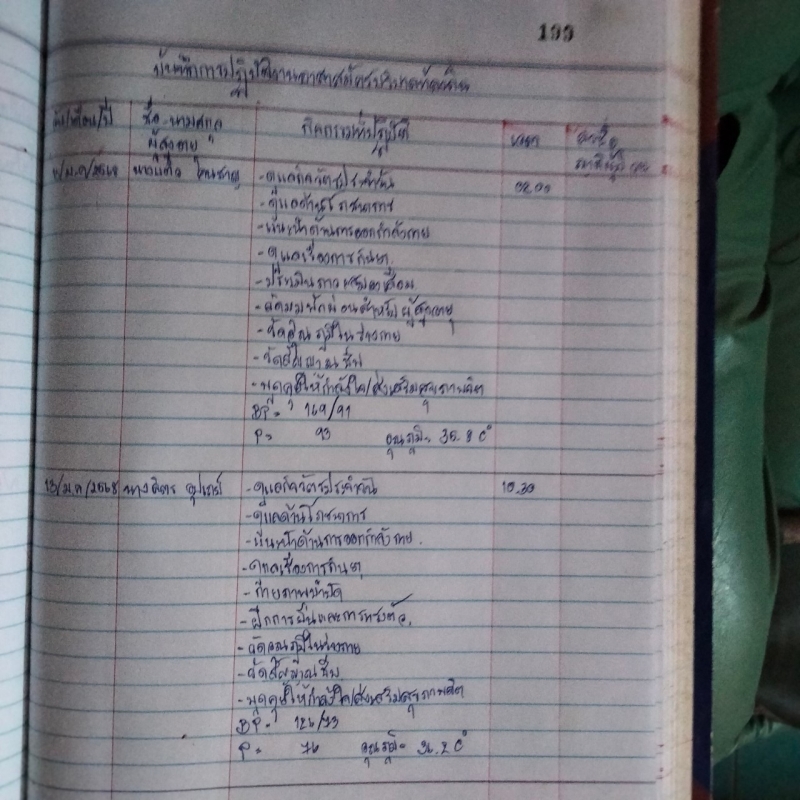 199
บันทึกการปฏิบัติงานอาสาสมัครบริบาลท้องถิ่น
วัน/เดือน/ปี ชื่อ-นามสกุล กิจกรรมที่ปฏิบัติ เวลา ลงชื่อ
ผู้สูงอายุ
นางแก้ว - ดูแลกิจวัตรประจำวัน
- ดูแลด้านโภชนาการ
- แนะนำด้านการออกกำลังกาย
- ดูแลเรื่องการกินยา
- ประเมินภาวะสมองเสื่อม
- จัดมุมพักผ่อนสำหรับผู้สูงอายุ
- วัดอุณภูมิในร่างกาย
- วัดสัญญาณชีพ
- พูดคุยให้กำลังใจ/ส่งเสริมสุขภาพจิต
BP = 149/91
P = 93 อุณภูมิ = 36.8 C°
13/ม.ค/2568 นาง - ดูแลกิจวัตรประจำวัน 10.30
- ดูแลด้านโภชนาการ
- แนะนำด้านการออกกำลังกาย
- ดูแลเรื่องการกินยา
- กายภาพบำบัด
- ฝึกการยืนและการทรงตัว
- วัดอุณภูมิในร่างกาย
- วัดสัญญาณชีพ
- พูดคุยให้กำลังใจ/ส่งเสริมสุขภาพจิต
BP =
P = 76 อุณภูมิ = 36.2 C°